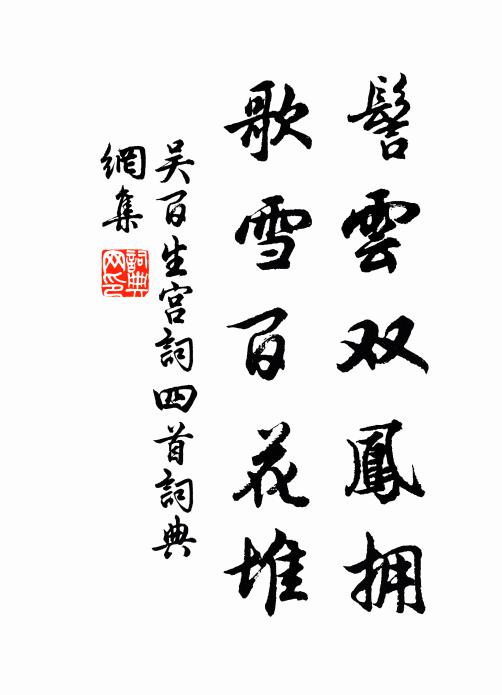 髻雲双鳳拥
歌雪百花堆
吴百生宫詞四首詞典
網集
詞典网印